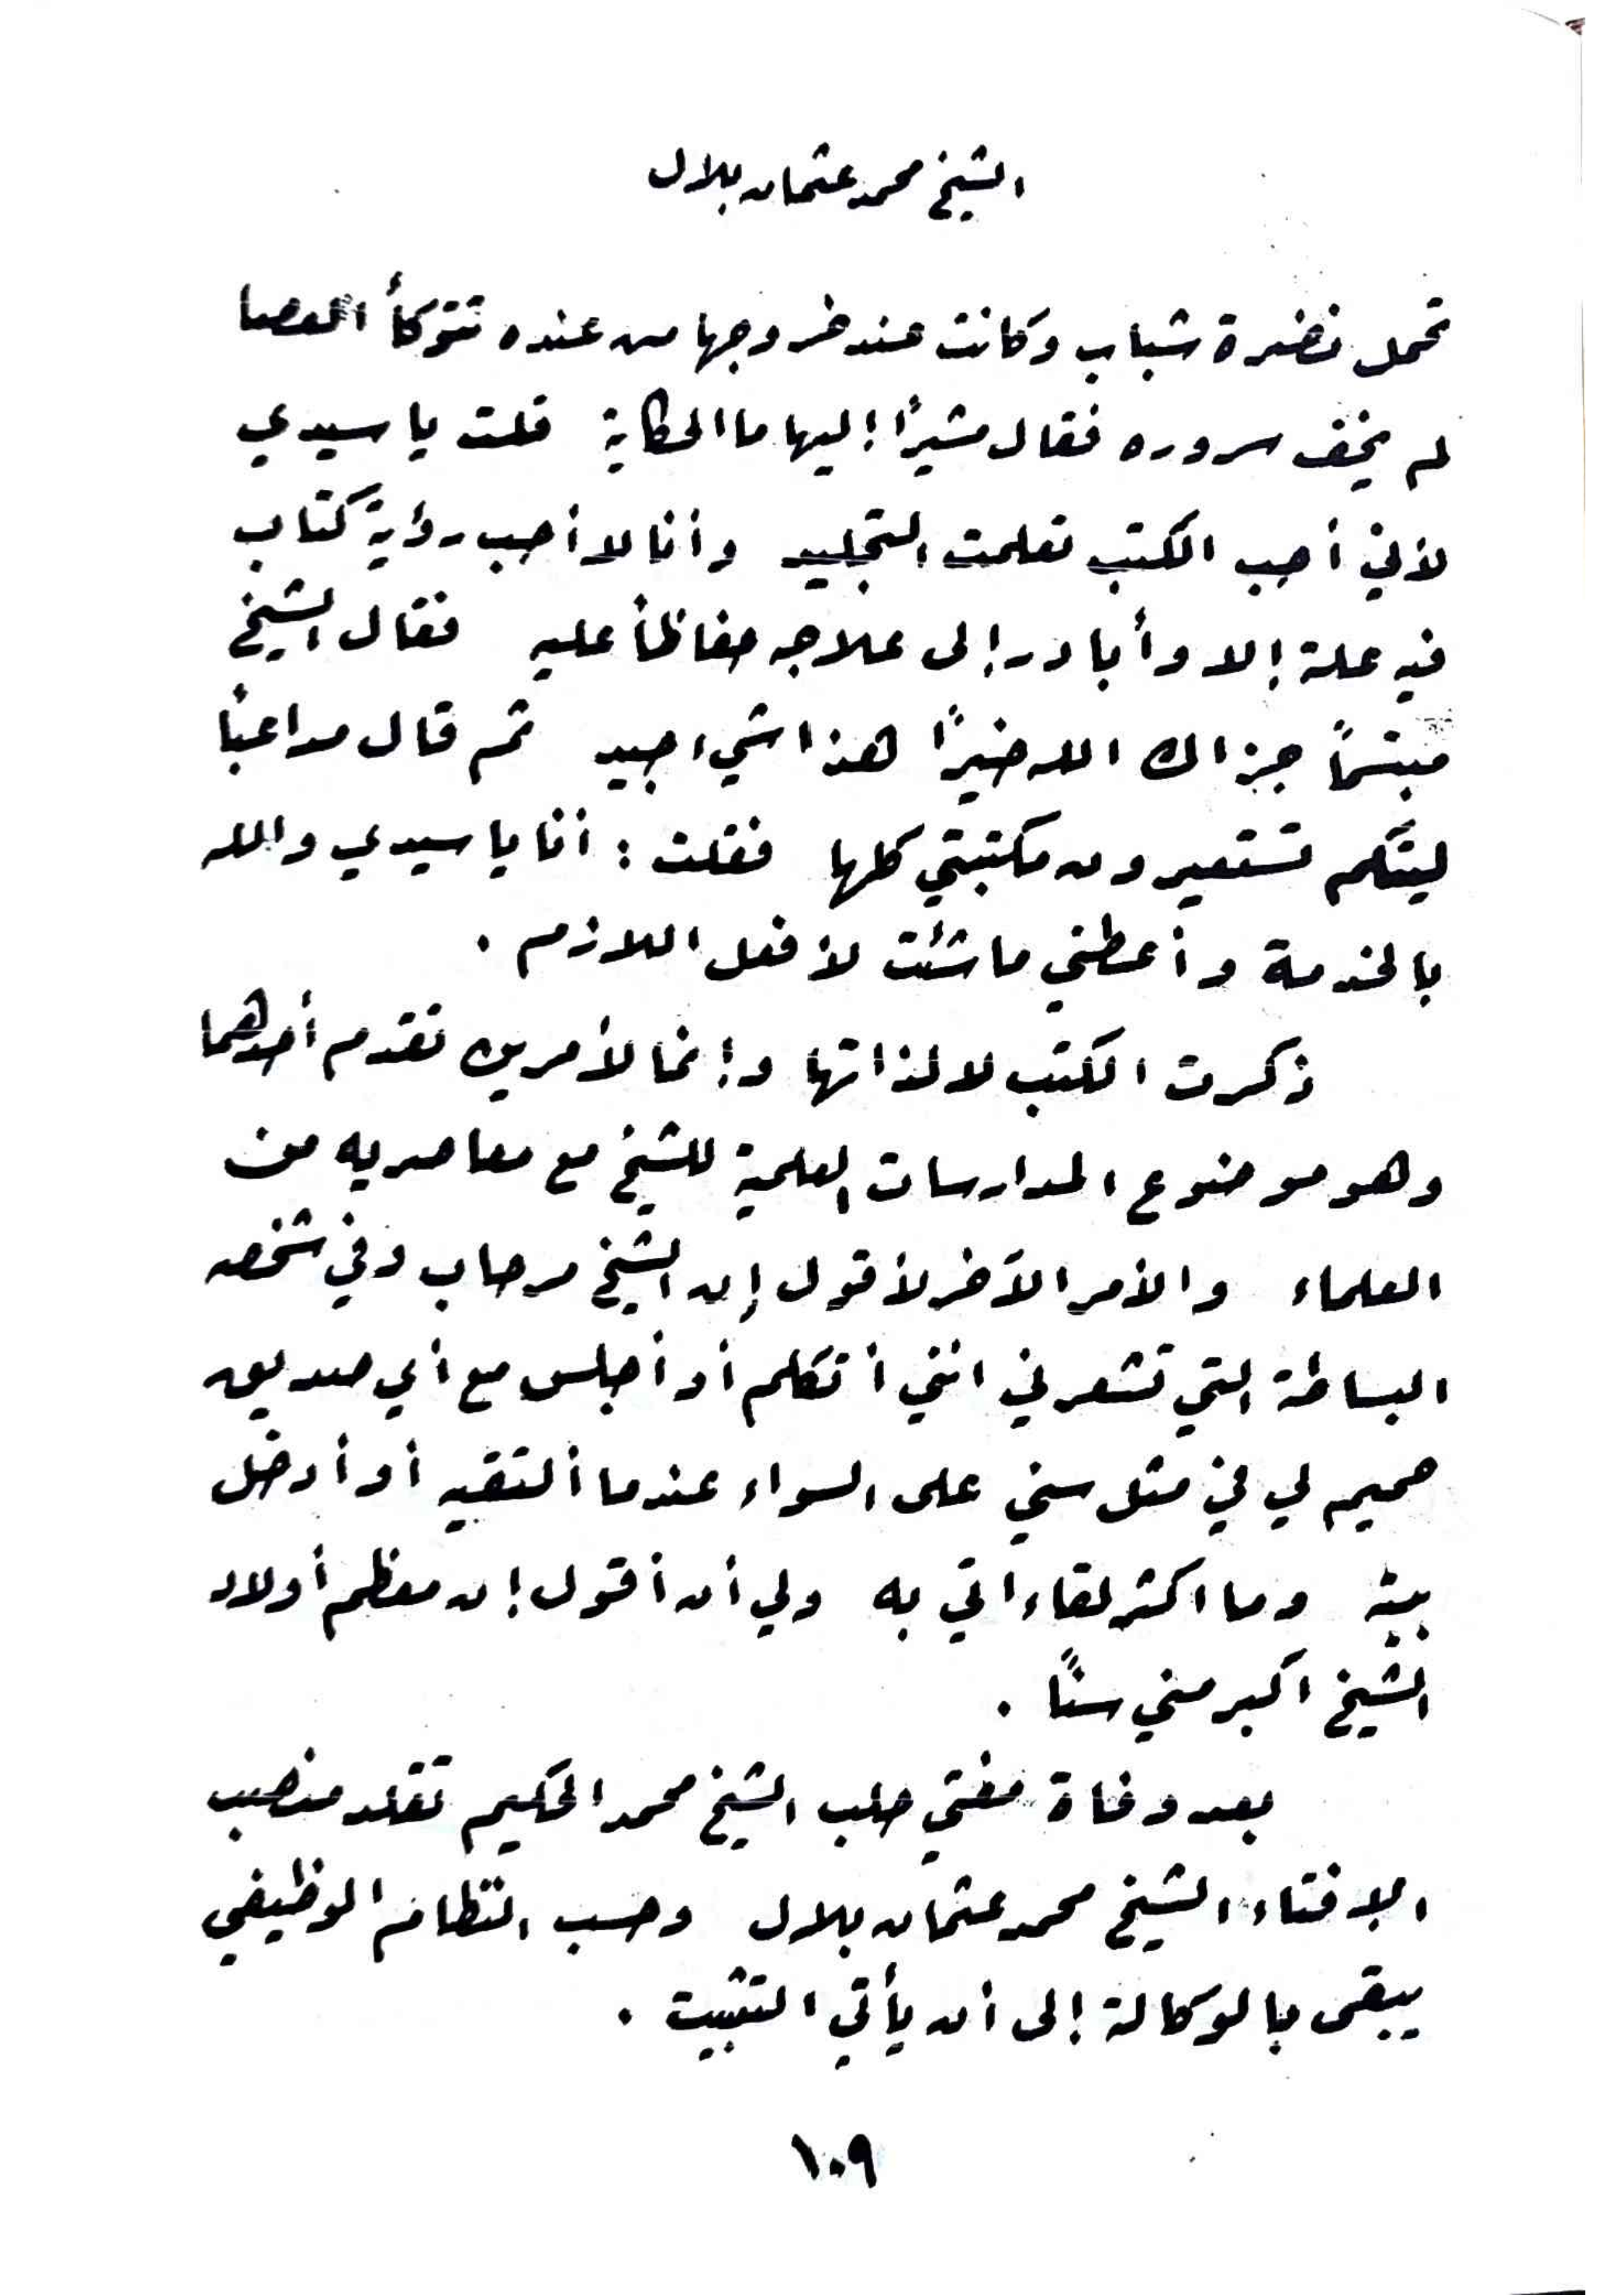 الشيخ محمد عثمان بلال
تحمل نضرة شباب وكانت عند خروجها من عنده تتوكأ العصا
لم يخف سروره فقال مشيرًا إليها ما الحكاية قلت يا سيدي
لأني أحب الكتب تعلمت التجليد وأنا لا أحب رؤية كتاب
فيه علة إلا وأبادر إلى علاجه حفاظًا عليه فقال الشيخ
مبتسمًا جزاك الله خيرًا هذا شيء جيد ثم قال مداعبًا
ليتكم تستعيرون مكتبتي كلها فقلت : أنا يا سيدي والله
بالخدمة وأعطني ما شئت لأفعل اللازم .
ذكرت الكتب لا لذاتها وإنما لأمرين تقدم أحدهما
وهو موضوع المدارسات العلمية للشيخ مع معاصريه من
العلماء والأمر الآخر لأقول إن الشيخ مرحاب وفي شخصه
البساطة التي تشعرني انني أتكلم أو أجلس مع أي صديق
حميم لي في مثل سني على السواء عندما ألتقيه أو أدخل
بيته وما اكثر لقاءاتي به ولي أن أقول إن معظم أولاد
الشيخ اكبر مني سنًا .
بعد وفاة مفتي حلب الشيخ محمد الحكيم تقلد منصب
الإفتاء الشيخ محمد عثمان بلال وحسب النظام الوظيفي
يبقى بالوكالة إلى أن يأتي التثبيت .
١٠٩